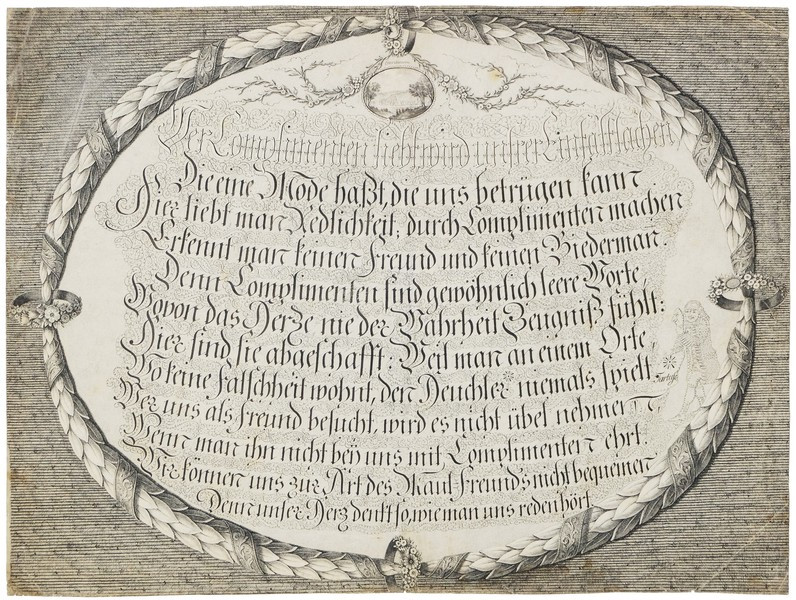 Wer Complimenten liebt wird unsrer Einfalt lachen
Die eine Mode haßt, die uns betrügen kann
Hier liebt man Redlichkeit; durch Complimenten machen
Erkennt man keinen Freund und keinen Biederman.
Denn Complimenten sind gewöhnlich leere Worte,
Wovon das Herze nie der Wahrheit Zeugniß fühlt:
Hier sind sie abgeschafft: Weil man an einem Orte,
Wo keine Falschheit wohnt, den Heuchler* niemals spielt.
* Tartufe
Wer uns als Freund besucht, wird es nicht übel nehmen,
Wenn man ihn nicht beÿ uns mit Complimenten ehrt.
Wir können uns zur Art des Maul-Freunds nicht bequemen
Denn unser Herz denkt so, wie man uns reden hört